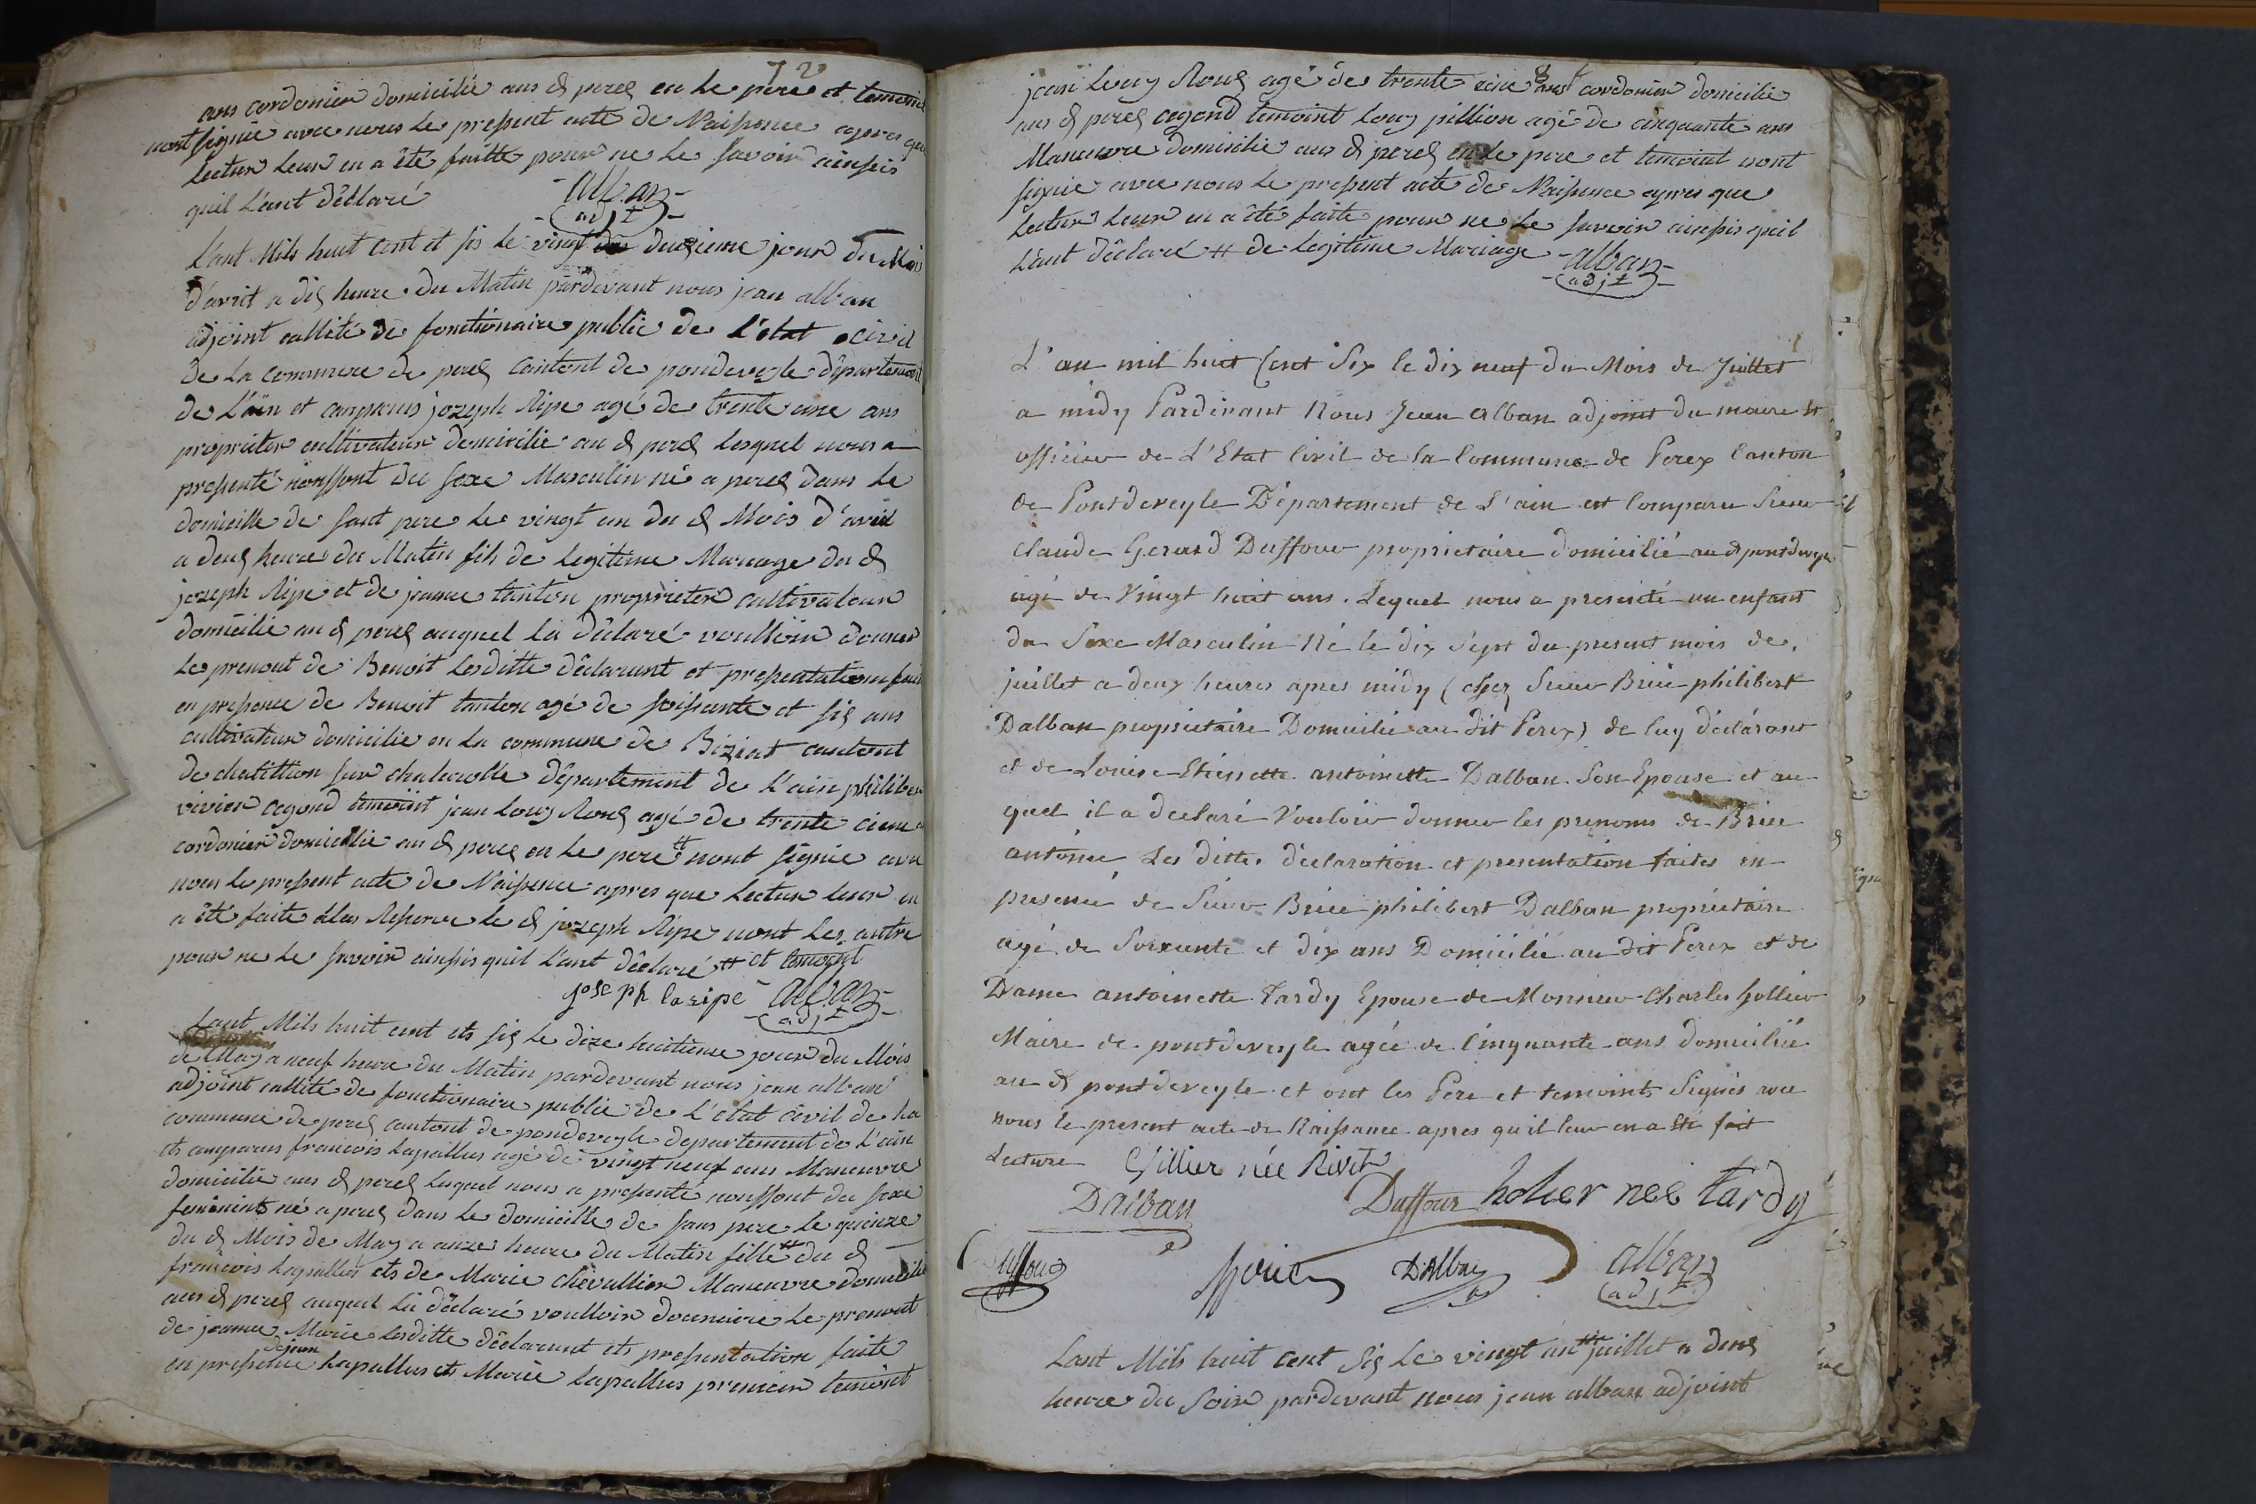 72
ans cordonier domicilié aus d perex en le pere et temoint
nont signie avec nous le pressent acte de Naissence apres que
lectur leur en a êté faitte pour ne le savoir ainssis
quil l'ant dêclaré
alban
adjt
L'ant Mils huit cent et sis le vingt deuzieme jour du Mois
d'avrit a dix heure du Matin pardevant nous jean alban
adjoint callité de fonctionaire public de l'état civil
de la commune de perex cantont de pondeveyle département
de l'ain et comparus jozeph Ripe agé de trente une ans
proprieter cultivateur domicilie au d perex lesquel nous a
pressenté nonffont du sexe Masculin né a perex dans le
domicille de sont pere le vingt un du d Mois d'avril
a deux heure du Matin fils de legitime Mariage du d
jozeph Ripe et de jeanne tanton proprieter cultivateur
domicilie au d perex auquel la dêclaré voulloir donner
le prenont de Benoit lesditte dêclarant et pressentation faite
en pressence de Benoit tanton agé de soissante et sis ans
cultivateur domicilie en la commune de Biziat cantont
de chatillion sur chalaronne département de l'ain philiber
vivier cegond temoint jean Louy Roux agé de trente cienc
cordonier domicilie au d perex en le pere # nont signie avec
nous le pressent acte de Naissence apres que lectur leur en
a êté faite a les Reserve le d jozeph Ripe nont les autre
pour ne le savoir ainssis quil l'ant dêclaré # et temoynt
Joseph laripe alban
adjt
Lant Mils huit cent ets six le dize huitieme jour du Mois
de May a neuf heure du Matin pardevant nous jean alban
adjoint callité de fonctionaire public de l'état civil de la
commune de perex cantont de pondeveyle departement de l'ain
ets comparus francois Lapallus agé de vingt neuf ans Maneuvre
domicilie aus d perex lequel nous a pressenté nonffont du sexe
feminint né a perex dans le domicille de sans pere le quienze
du d Mois de May a onze heure du Matin fille # du d
francois Lapallus ets de Marie chevallier Maneuvre domicilie
aus d perex auquel la dêclaré voulloir donnaire le prenont
de jeanne Marie lesditte dêclarant ets pressentation faite
en pressence de jean Lapallus ets Marie Lapallus premier temoint
jean Louy Roux agé de trente cinc ans cordonier domicilie
aus d perex cegond temoint Louy pillion agé de cinquante ans
Maneuvre domicilie aus d perex en le pere et temoint nont
signie avec nous le pressent acte de Naissence apres que
lectur leur en a êté faite pour ne le savoir ainssis quil
l'ant dêclaré # de legitime Mariage alban
adjt
L'an mil huit Cent Six le dix neuf du Mois de Juillet
a midy Pardevant Nous Jean alban adjoint du maire et
officier de L'Etat Civil de la Commune de Perex Canton
de Pontdeveyle Département de L'ain est Comparu Sieur
Claude Gerard Duffour proprietaire domicilié au d pontdeveyle
agé de Vingt huit ans. Lequel nous a presenté un enfant
du Sexe Masculin Né le dix Sept du present mois de
juillet a deux heures apres midy (chez Sieur Brice philibert
Dalban proprietaire Domicilié au dit Perex) de luy déclarant
et de Louise Etiennette antoinette Dalban Son Epouse et au
quel il a declaré Vouloir donner les prenoms de Brice
antoine Les dittes déclaration et presentation faites en
presence de Sieur Brice philibert Dalban propriétaire
agé de Soixante et dix ans Domicilié au dit Perex et de
Dame antoinette Tardy Epouse de Monsieur Charles hollier
Maire de pontdeveyle agée de Cinquante ans domiciliée
au d pontdeveyle et ont les Pere et temoints Signés avec
nous le present acte de Naissance apres qu'il leur en a été fait
Lecture Gillier née Rivet
Dalban Duffour holier neé tardy
Duffour Dalban alban
adjt
Lant Mils huit cent six le vingt un juillet a deux
heure du Soir pardevant nous jean alban adjoint